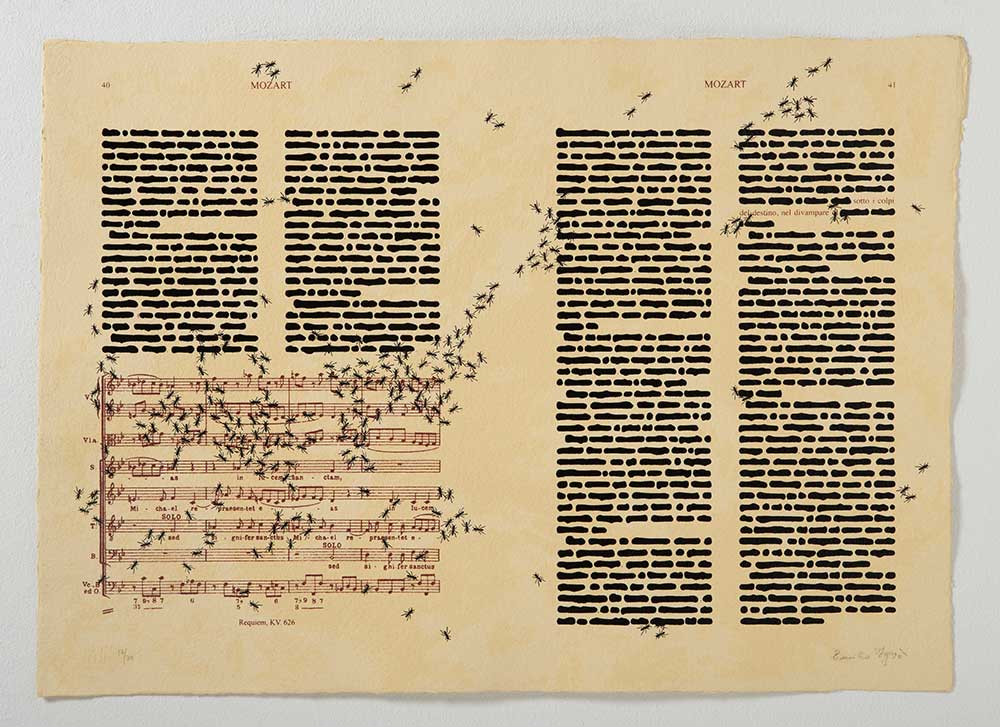 40
MOZART
MOZART
41
sotto i colpi
del destino, nel divampare
Vla.
S.
as in lu-cem san-ctam,
Mi-cha-el re-praesen-tet e as in lu-cem
SOLO
T.
sed si-gni-fer sanctus Mi-cha-el re-praesen-tet e-
SOLO
B.
sed si-gni-fer sanctus
Vc., B.
ed O.
7 9 8 7 6 7 6 7 9 8 7
5 3
Requiem, KV. 626